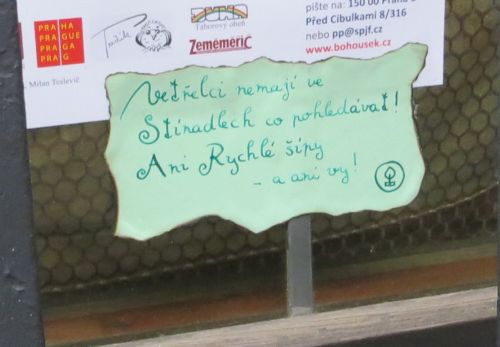 PRA HA
PRA GUE
PRA GA
PRA G
Milan Teslevič
Táborový oheň
Zeměměřič
pište na: 150 00 Praha 5
Před Cibulkami 8/316
nebo pp@spjf.cz
www.bohousek.cz
Vetřelci nemají ve
Stínadlech co pohledávat!
Ani Rychlé šípy
- a ani vy!